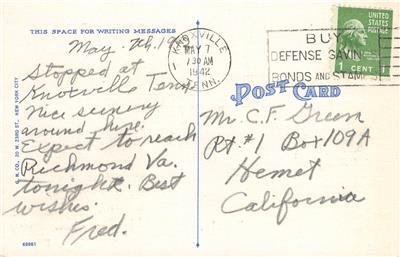 THIS SPACE FOR WRITING MESSAGES
May 7th, 19
Stopped at
Knoxville Tenn
Nice scenery
around here.
Expect to reach
Richmond Va.
tonight. Best
wishes.
Fred.
C. R. CO., 20 W. 23RD ST., NEW YORK CITY
62681
KNOXVILLE
MAY 7
7 30 AM
1942
TENN.
BUY
DEFENSE SAVIN
BONDS AND STAM
UNITED
STATES
POSTAGE
1 CENT 1
POST CARD
Mr. C. F. Green
Rt. #1 Box 109A
Hemet
California